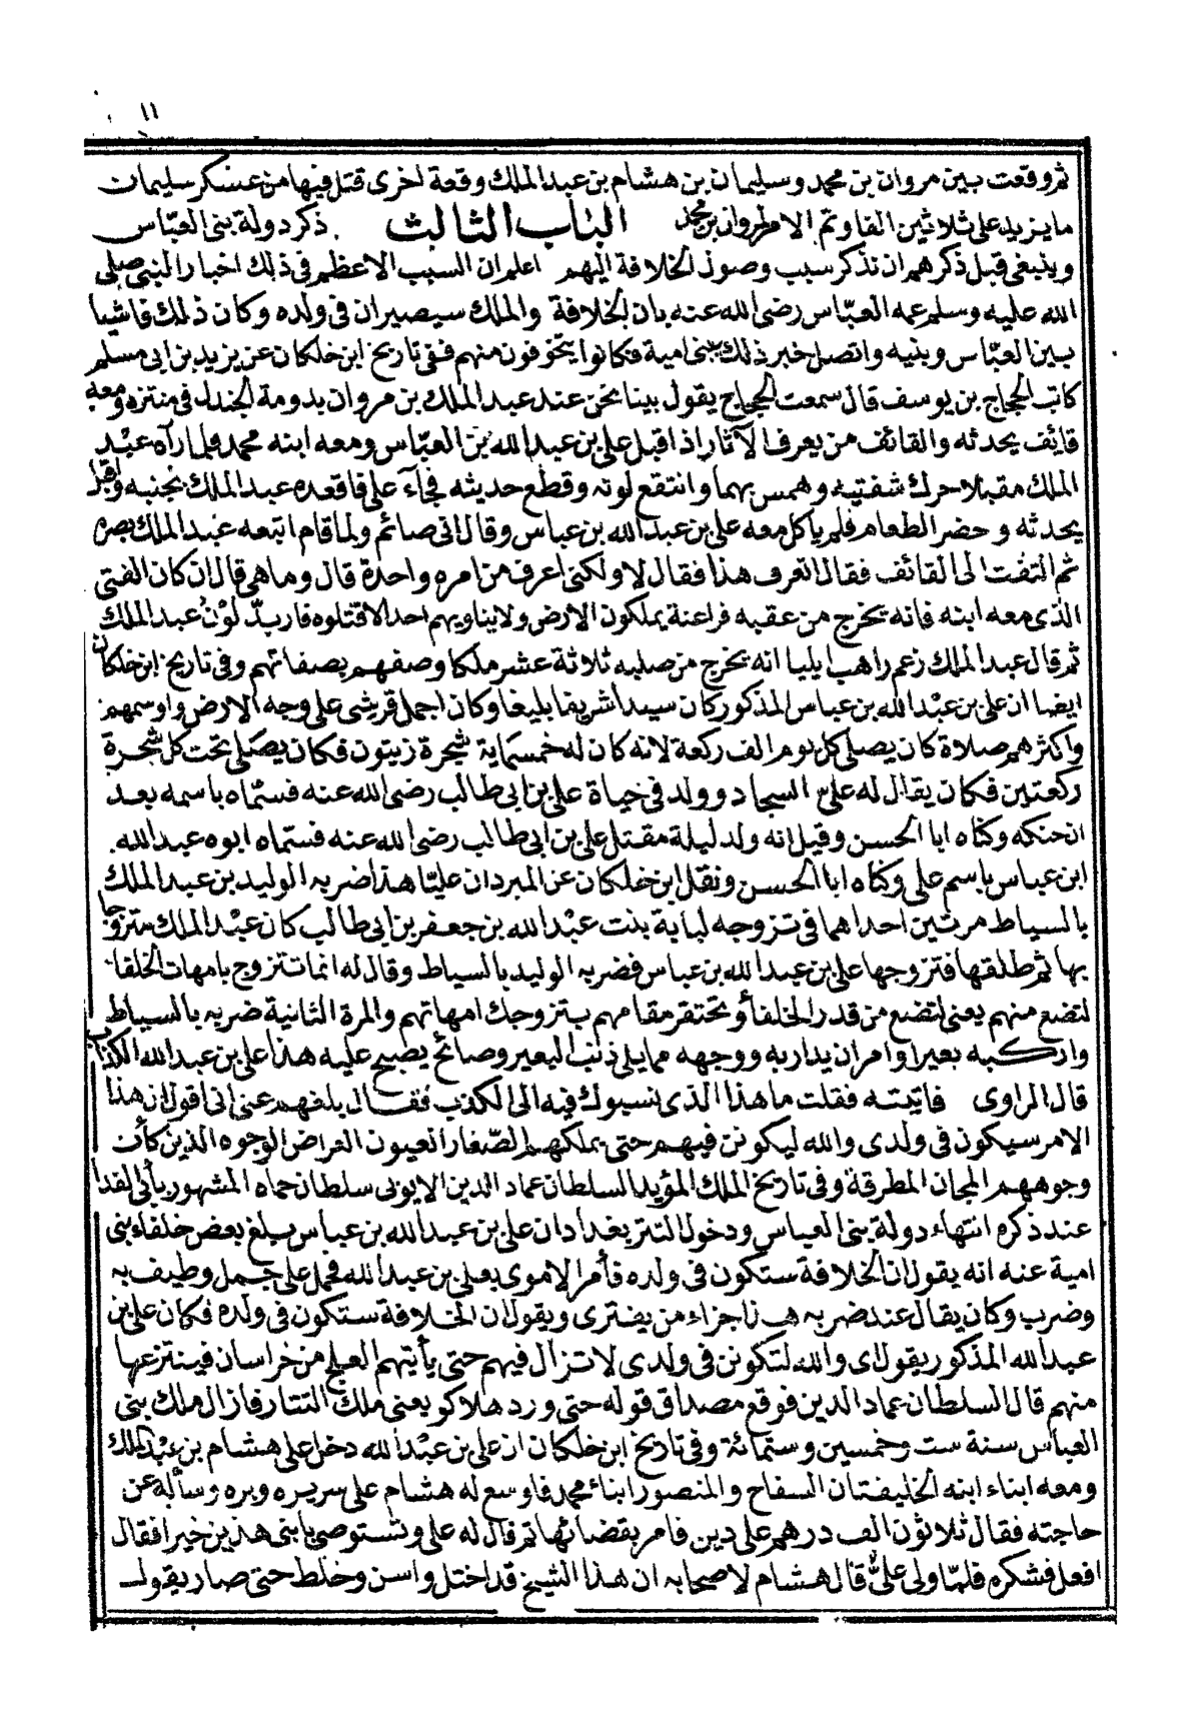 ١١
ثم وقعت بين مروان بن محمد وسليمان بن هشام بن عبد الملك وقعة اخرى قتل فيها من عسكر سليمان
ما يزيد على ثلاثين الفا وتم الامر لمروان بن محمد الباب الثالث ذكر دولة بنى العبّاس
وينبغى قبل ذكرهم ان نذكر سبب وصول الخلافة اليهم اعلم ان السبب الاعظم فى ذلك اخبار النبى صلى
الله عليه وسلم عمه العبّاس رضى الله عنه بان الخلافة والملك سيصيران فى ولده وكان ذلك فاشيا
بين العبّاس وبنيه واتصل خبر ذلك ببنى امية فكانوا يتخوفون منهم ففى تاريخ ابن خلكان عن يزيد بن ابى مسلم
كاتب الحجاج بن يوسف قال سمعت الحجاج يقول بينا نحن عند عبد الملك بن مروان بدومة الجندل فى منتزه ومعه
قايف يحدثه والقائف من يعرف الآثار اذ اقبل على بن عبد الله بن العبّاس ومعه ابنه محمد فلما رآه عبد
الملك مقبلا حرك شفتيه وهمس بهما وانتقع لونه وقطع حديثه فجآء على فاقعده عبد الملك بجنبه واقبل
يحدثه وحضر الطعام فلم ياكل معه على بن عبد الله بن عباس وقال انى صائم ولما قام اتبعه عبد الملك بصره
ثم التفت الى القائف فقال اتعرف هذا فقال لا ولكنى اعرف من امره واحدة قال وما هى قال ان كان الفتى
الذى معه ابنه فانه تخرج من عقبه فراعنة يملكون الارض ولا يناويهم احد الا قتلوه فاربدّ لون عبد الملك
ثم قال عبد الملك زعم راهب ايليا انه يخرج من صلبه ثلاثة عشر ملكا وصفهم بصفاتهم وفى تاريخ ابن خلكان
ايضا ان على بن عبد الله بن عباس المذكور كان سيدا شريفا بليغا وكان اجمل قريشى على وجه الارض واوسمهم
واكثرهم صلاة كان يصلى كل يوم الف ركعة لانه كان له خمسماية شجرة زيتون فكان يصلى تحت كل شجرة
ركعتين فكان يقال له علىّ السجاد وولد فى حياة على بن ابى طالب رضى الله عنه فسمّاه باسمه بعد
ان حنكه وكناه ابا الحسن وقيل انه ولد ليلة مقتل على بن ابى طالب رضى الله عنه فسماه ابوه عبد الله
ابن عباس باسم على وكناه ابا الحسن ونقل ابن خلكان عن المبرد ان عليّا هذا ضربه الوليد بن عبد الملك
بالسياط مرتين احداهما فى تزوجه لبابة بنت عبد الله بن جعفر بن ابى طالب كان عبد الملك متزوجا
بها ثم طلقها فتزوجها على بن عبد الله بن عباس فضربه الوليد بالسياط وقال له انما تتزوج بامهات الخلفا
لتضع منهم يعنى لتضع من قدر الخلفا أو تحتقر مقامهم بتزوجك امهاتهم والمرة الثانية ضربه بالسياط
واركبه بعيرا وامر ان يدار به ووجهه مما يلى ذنب البعير وصائح يصيح عليه هذا على بن عبد الله الكذاب
قال الراوى فاتيته فقلت ما هذا الذى نسبوك فيه الى الكذب فقال بلغهم عنى انى اقول ان هذا
الامر سيكون فى ولدى والله ليكونن فيهم حتى يملكهم الصّغار العيون العراض الوجوه الذين كأن
وجوههم المجان المطرقة وفى تاريخ الملك المؤيد السلطان عماد الدين الايوبى سلطان حماه المشهور بأبى الفدا
عند ذكره انتهاء دولة بنى العباس ودخول التتر بغداد ان على بن عبد الله بن عباس بلغ بعض خلفاء بنى
امية عنه انه يقول ان الخلافة ستكون فى ولده فأمر الاموى بعلى بن عبد الله فحمل على جمل وطيف به
وضرب وكان يقال عند ضربه هذا جزاء من يفترى ويقول ان الخلافة ستكون فى ولده فكان على بن
عبد الله المذكور يقول اى والله لتكونن فى ولدى لا تزال فيهم حتى يأتيهم العلج من خراسان فينتزعها
منهم قال السلطان عماد الدين فوقع مصداق قوله حتى ورد هلاكو يعنى ملك التتار فازال ملك بنى
العباس سنة ست وخمسين وستمائة وفى تاريخ ابن خلكان ان على بن عبد الله دخل على هشام بن عبد الملك
ومعه ابناء ابنه الخليفتان السفاح والمنصور ابناء محمد فاوسع له هشام على سريره وبره وسأله عن
حاجته فقال ثلاثون الف درهم على دين فامر بقضائها ثم قال له على وتستوصى بابنى هذين خيرا فقال
افعل فشكره فلمّا ولى علىّ قال هشام لاصحابه ان هذا الشيخ قد اختل واسن وخلط حتى صار يقول